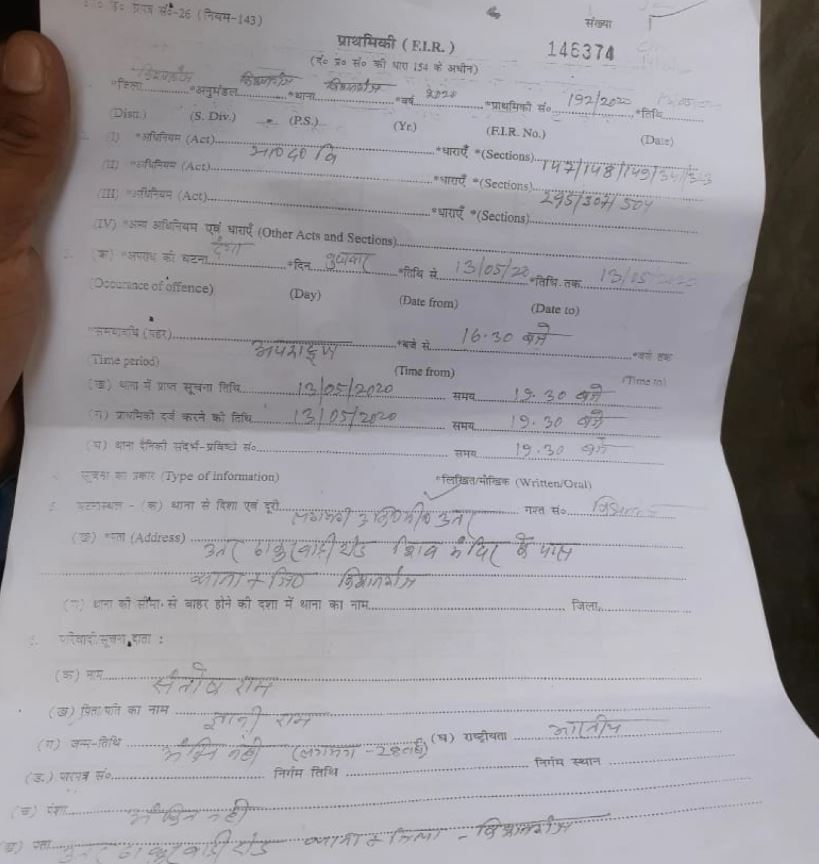 प्रपत्र सं०-26 (नियम-143)
संख्या
146374
प्राथमिकी (F.I.R.)
(द० प्र० सं० की धारा 154 के अधीन)
*जिला किशनगंज *अनुमंडल किशनगंज *थाना किशनगंज *वर्ष 2020 *प्राथमिकी सं० 192/2020 *तिथि
(Distt.) (S. Div.) (P.S.) (Yr.) (F.I.R. No.) (Date)
(I) *अधिनियम (Act) भा० द० वि *धाराएँ *(Sections) 147/148/149/34/323
(II) *अधिनियम (Act) *धाराएँ *(Sections) 295/307/504
(III) *अधिनियम (Act) *धाराएँ *(Sections)
(IV) *अन्य अधिनियम एवं धाराएँ (Other Acts and Sections)
(क) *अपराध की घटना दंगा *दिन बुधवार *तिथि से 13/05/20 *तिथि तक 13/05/2020
(Occurance of offence) (Day) (Date from) (Date to)
*समयावधि (पहर) अपराह्न *बजे से 16.30 बजे *बजे तक
(Time period) (Time from) (Time to)
(ख) थाना में प्राप्त सूचना तिथि 13/05/2020 समय 19.30 बजे
(ग) प्राथमिकी दर्ज करने की तिथि 13/05/2020 समय 19.30 बजे
(घ) थाना दैनिकी संदर्भ-प्रविष्टि सं० समय 19.30 बजे
सूचना का प्रकार (Type of information) *लिखित/मौखिक (Written/Oral)
घटनास्थल - (क) थाना से दिशा एवं दूरी लगभग उत्तर गश्त सं०
(ख) *पता (Address) उत्तर ठाकुरबाड़ी रोड शिव मंदिर के पास
थाना + जि० किशनगंज
(ग) थाना की सीमा से बाहर होने की दशा में थाना का नाम जिला
परिवादी/सूचना दाता :
(क) नाम संतोष राम
(ख) पिता/पति का नाम ज्ञानी राम
(ग) जन्म-तिथि अंकित नहीं (लगभग - 28 वर्ष) (घ) राष्ट्रीयता भारतीय
(ङ) पारपत्र सं० निर्गम तिथि निर्गम स्थान
(च) पेशा अंकित नही
(छ) पता उत्तर ठाकुरबाड़ी रोड थाना + जिला - किशनगंज